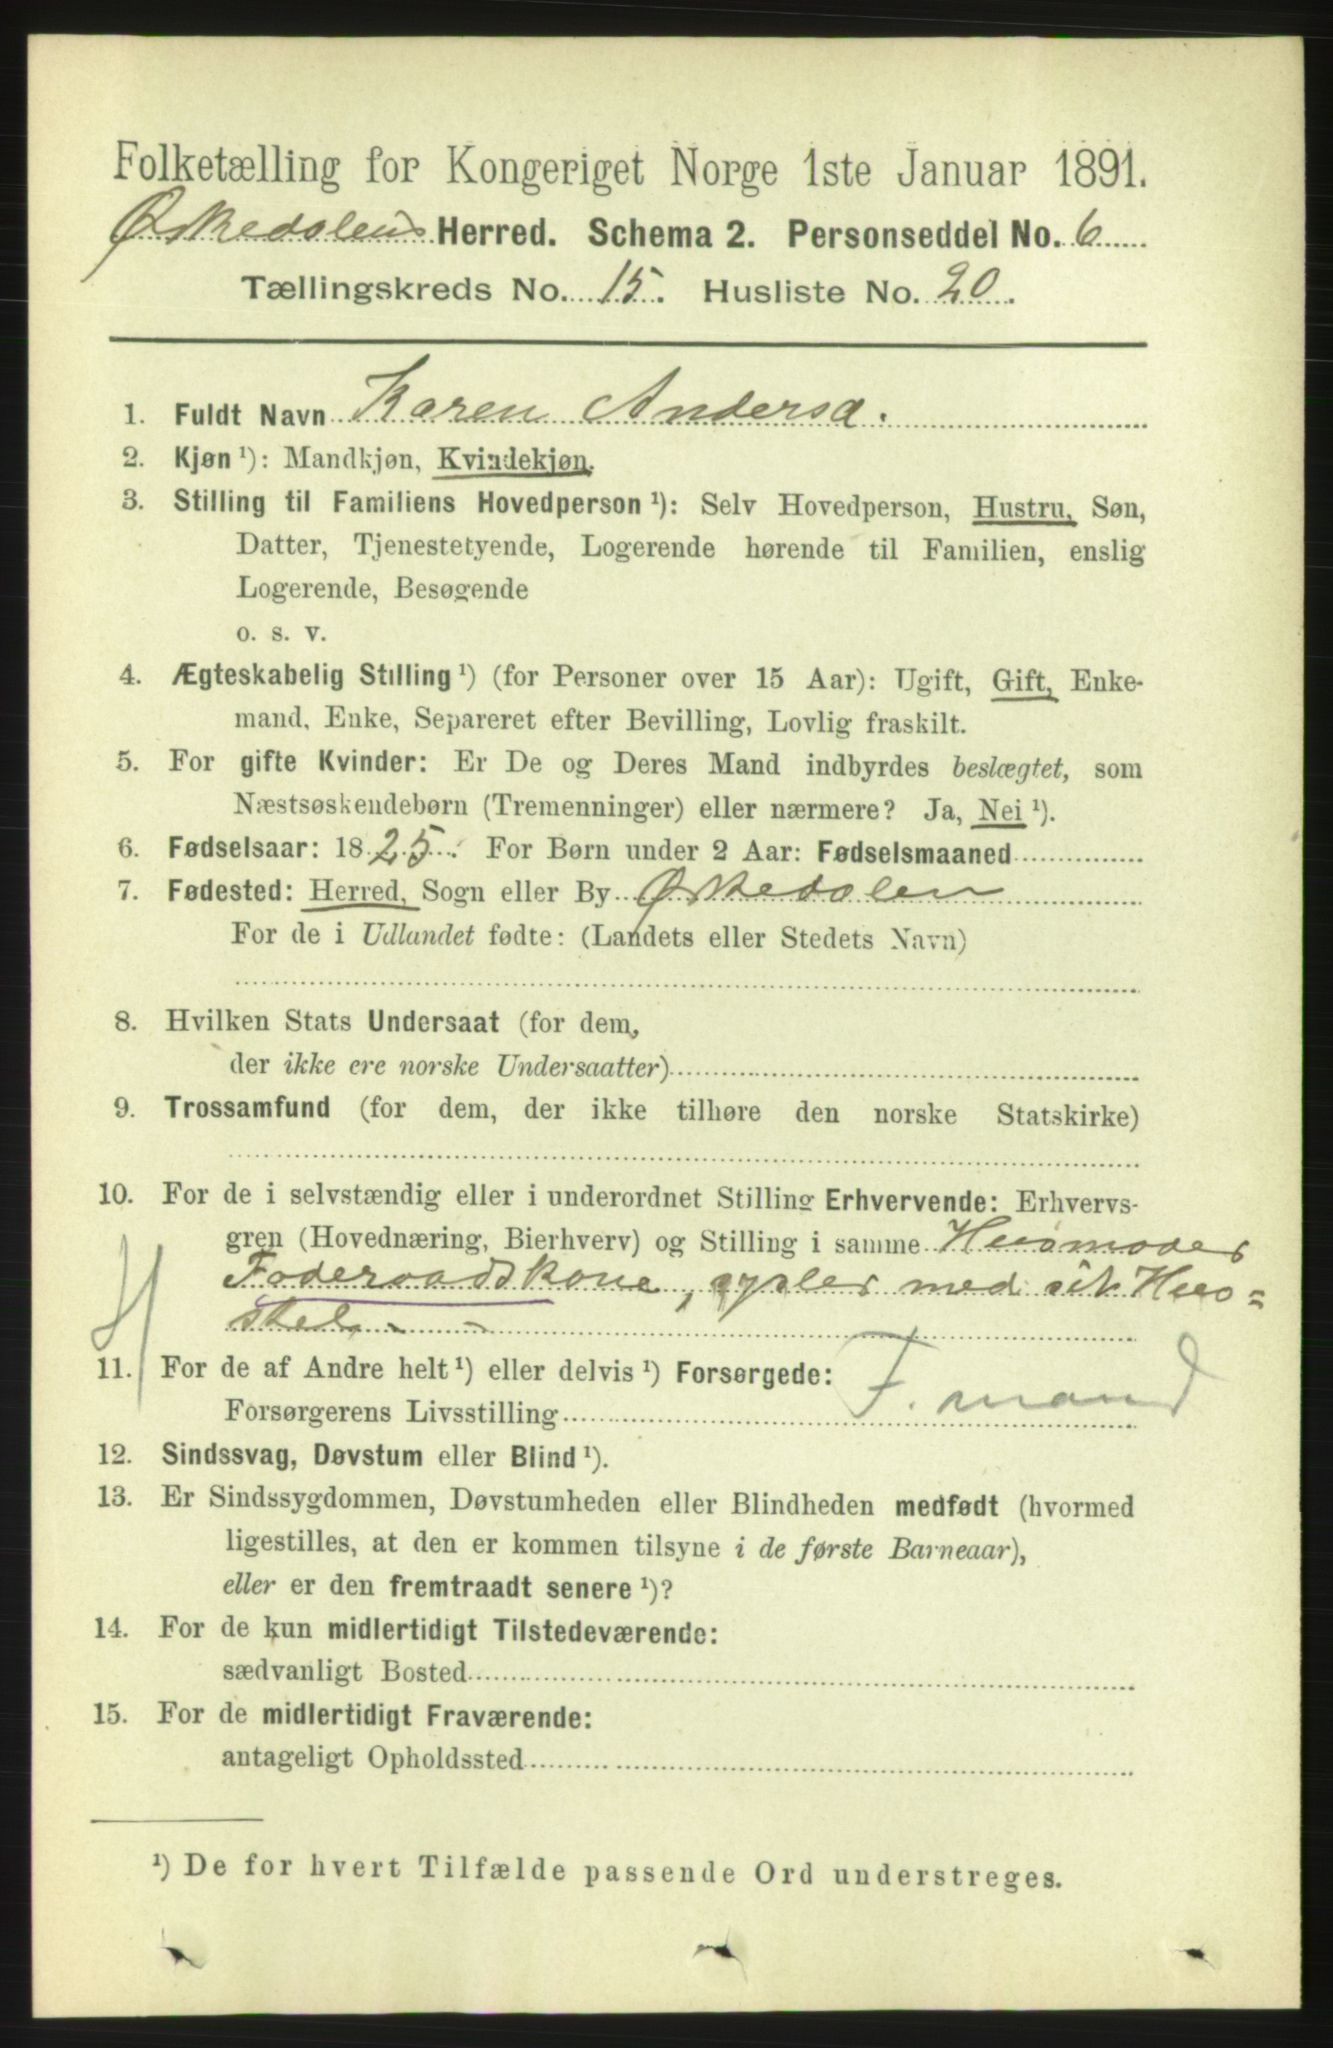 Folketælling for Kongeriget Norge 1ste Januar 1891.
Ørkedalens Herred. Schema 2. Personseddel No. 6
Tællingskreds No. 15. Husliste No. 20.
1. Fuldt Navn Karen Andersd.
2. Kjøn ¹): Mandkjøn, Kvindekjøn.
3. Stilling til Familiens Hovedperson ¹): Selv Hovedperson, Hustru, Søn,
Datter, Tjenestetyende, Logerende hørende til Familien, enslig
Logerende, Besøgende
o. s. v.
4. Ægteskabelig Stilling ¹) (for Personer over 15 Aar): Ugift, Gift, Enke-
mand, Enke, Separeret efter Bevilling, Lovlig fraskilt.
5. For gifte Kvinder: Er De og Deres Mand indbyrdes beslægtet, som
Næstsøskendebørn (Tremenninger) eller nærmere? Ja, Nei ¹).
6. Fødselsaar: 1825. For Børn under 2 Aar: Fødselsmaaned
7. Fødested: Herred, Sogn eller By Ørkedalen
For de i Udlandet fødte: (Landets eller Stedets Navn)
8. Hvilken Stats Undersaat (for dem,
der ikke ere norske Undersaatter)
9. Trossamfund (for dem, der ikke tilhøre den norske Statskirke)
10. For de i selvstændig eller i underordnet Stilling Erhvervende: Erhvervs-
gren (Hovednæring, Bierhverv) og Stilling i samme Husmoder
Foderaadskone, sysler med sit Huus=
stel.
11. For de af Andre helt ¹) eller delvis ¹) Forsørgede: F. mand
Forsørgerens Livsstilling
12. Sindssvag, Døvstum eller Blind ¹).
13. Er Sindssygdommen, Døvstumheden eller Blindheden medfødt (hvormed
ligestilles, at den er kommen tilsyne i de første Barneaar),
eller er den fremtraadt senere ¹)?
14. For de kun midlertidigt Tilstedeværende:
sædvanligt Bosted
15. For de midlertidigt Fraværende:
antageligt Opholdssted
¹) De for hvert Tilfælde passende Ord understreges.